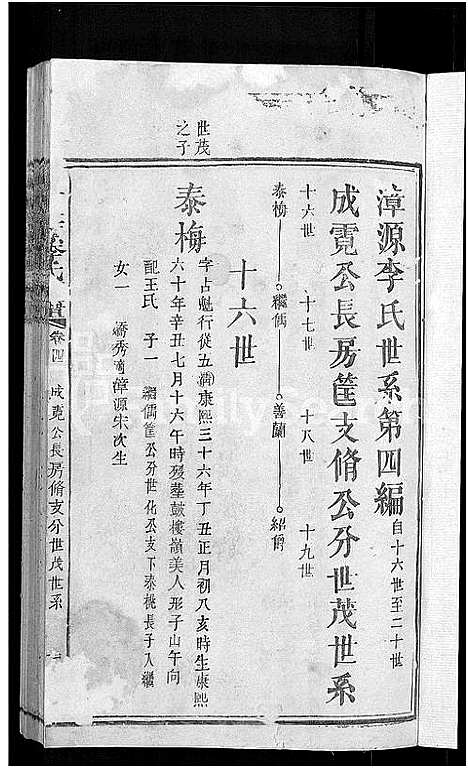 漳源李氏世系第四編 自十六世至二十世
成霓公長房筐支脩公分世茂世系
十六世 十七世 十八世 十九世
泰梅 繼儒 善蘭 紹爵
十六世
世茂之子
泰梅 字占魁行從五清康熙三十六年丁丑正月初八亥時生康熙
六十年辛丑七月十六午時歿塟鼓樓嶺美人形子山午向
配王氏 子一 繼儒筐公分世化公支下泰桃長子入繼
女一 秀適漳源宋次生
卷四 成霓公長房脩支分世茂世系